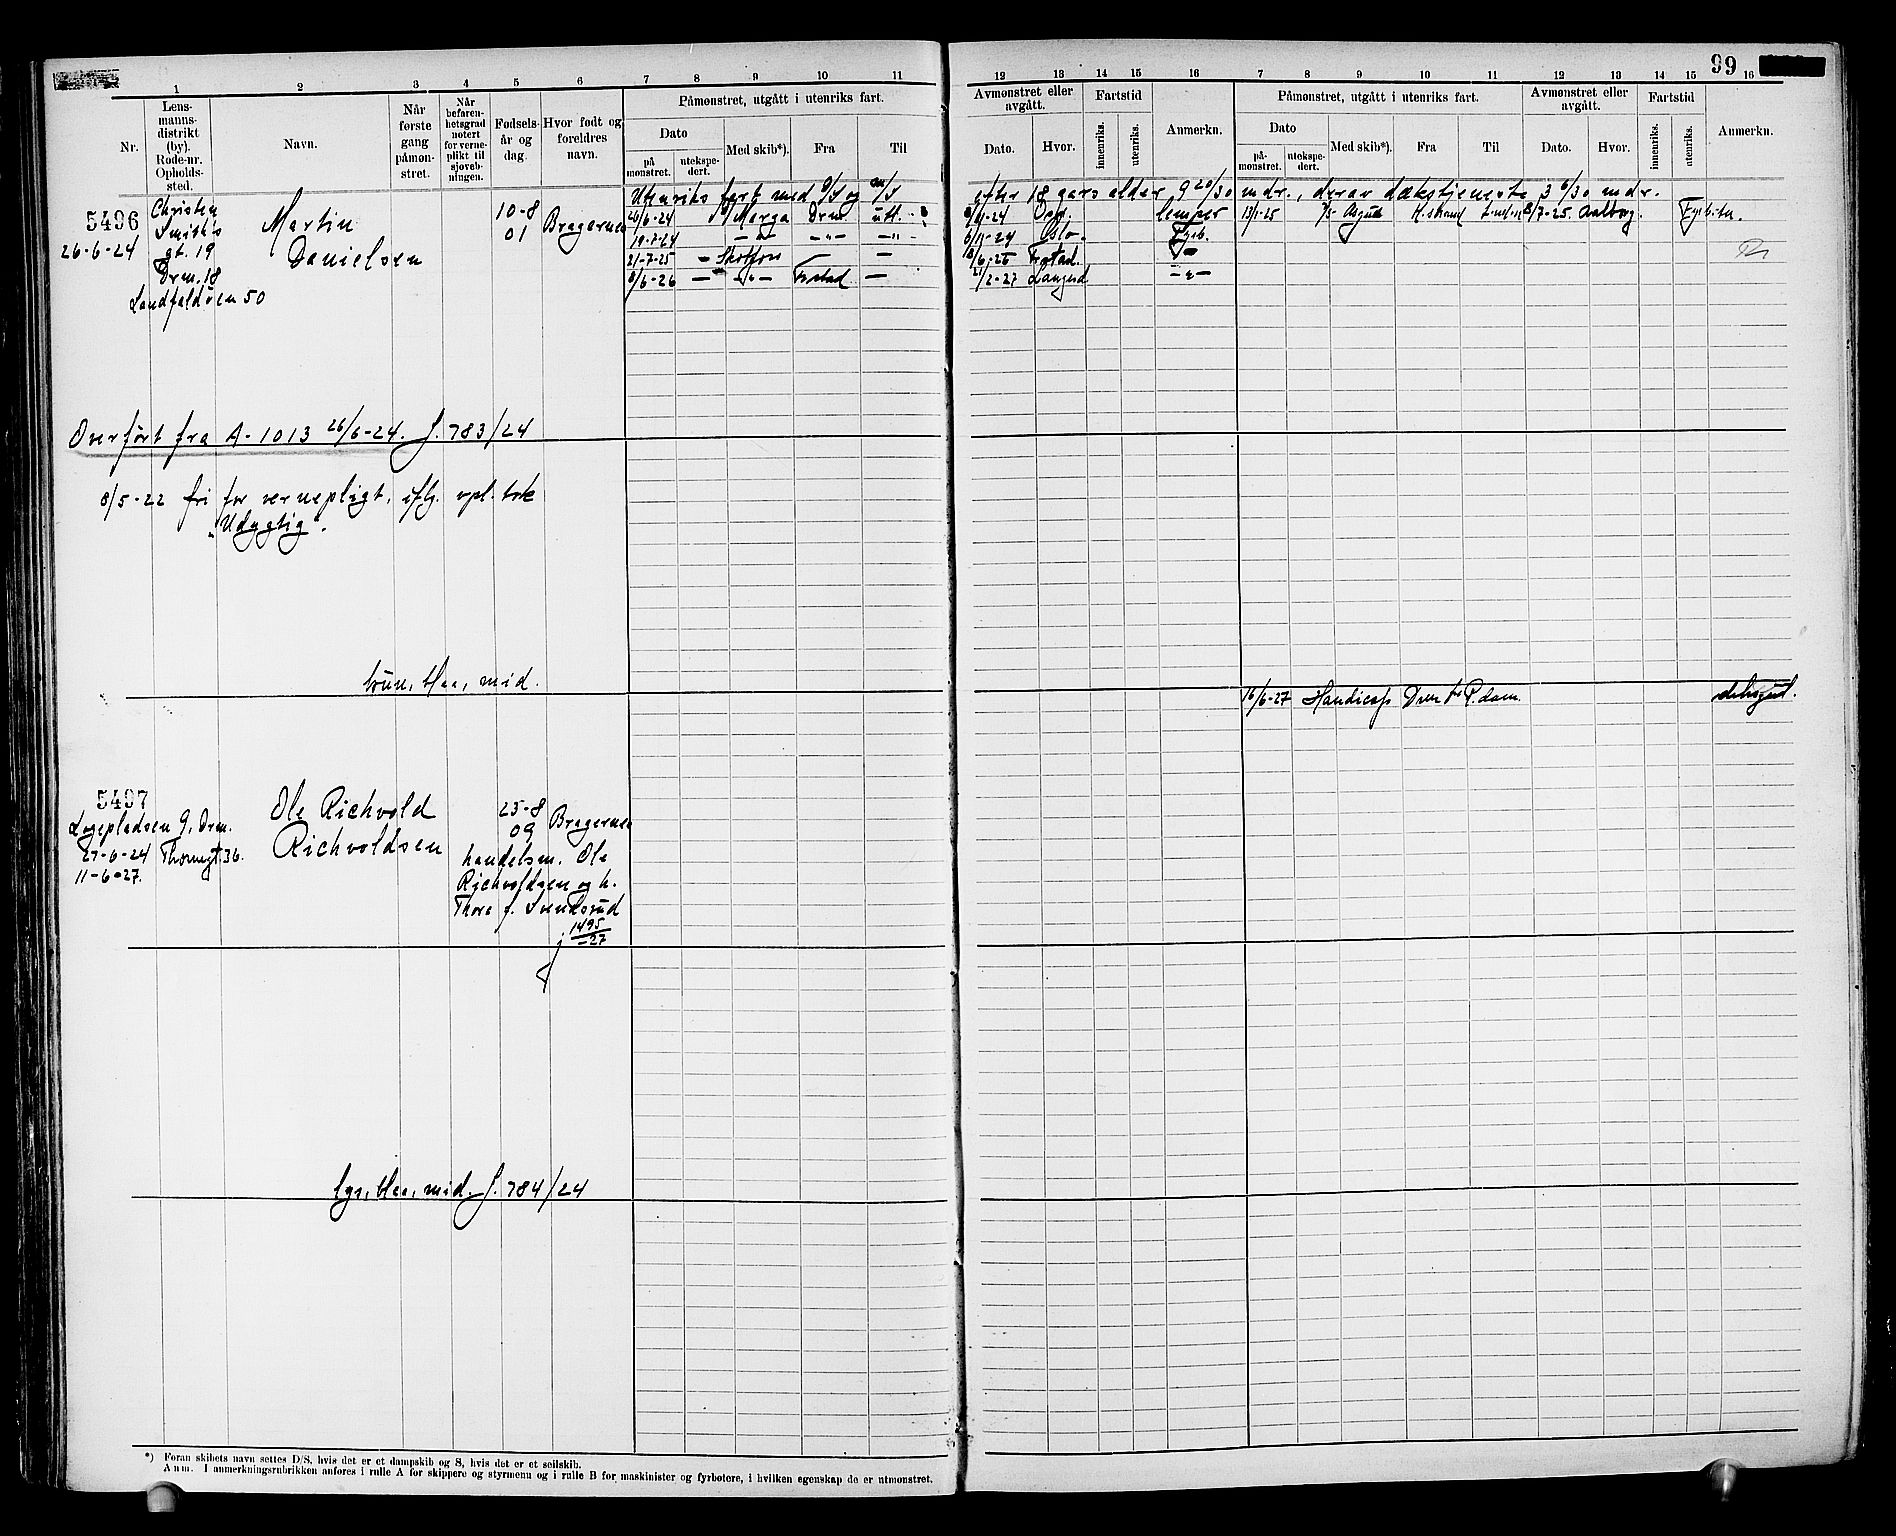 99
1 2 3 4 5 6 7 8 9 10 11
12 13 14 15 16 7 8 9 10 11 12 13 14 15 16
Nr.
Lens-
manns-
distrikt
(by).
Rode-nr.
Opholds-
sted.
Navn.
Når
første
gang
påmøn-
stret.
Når
befaren-
hetsgrad
notert
for verne-
plikt til
sjøveb-
ningen.
Fødsels-
år og
dag.
Hvor født og
foreldres
navn.
Påmønstret, utgått i utenriks fart.
Dato
på
mønstret.
utekspe-
dert.
Med skib*).
Fra
Til
Avmønstret eller
avgått.
Dato.
Hvor.
Fartstid
innenriks.
utenriks.
Anmerkn.
Påmønstret, utgått i utenriks fart.
Dato
på-
mønstret.
utekspe-
dert.
Med skib*).
Fra
Til
Avmønstret eller
avgått.
Dato.
Hvor.
Fartstid
innenriks.
utenriks.
Anmerkn.
5496
26-6-24
Christen
Smiths
gt. 19
Drm. 18
Landfaldøen 50
Martin
Danielsen
10-8
01
Bragernes
Utenriks fart med D/S og M/S efter 18 aars alder 9 20/30 mdr., derav dækstjeneste 3 6/30 mdr.
26/6-24 Marga Drm utl. -24 lemper 13/1-25 Asgun H.strand 8/7-25. Aalborg. Fyrbitn.
19-7-24 — " — — " — — " — 6/11-24 Oslo. Fyrb.
21-7-25 — Skotfoss — — 18/6-26 Frstad. — " —
8/6-26 — — " — Frstad — 21/2-27 Langesd — " —
Overført fra A-1013 26/6-24. J. 783/24
8/5-22 fri for vernepligt, iflg. opl. bok
„Udygtig".
brun, blaa, mid.
16/6-27 Handicap Drm R.dam.
5497
Løgepladsen 9, Drm.
27-6-24 Thornegt. 36.
11-6-27.
Ole Richvold
Richvoldsen
25-8
09
Bragernes
handelsm. Ole
Richvoldsen og h.
Thora f. Svendsrud
j 1495
-27
lys, blaa, mid. J. 784/24
*) Foran skibets navn settes D/S, hvis det er et dampskib og S, hvis det er et seilskib.
Anm. I anmerkningsrubrikken anføres i rulle A for skippere og styrmenn og i rulle B for maskinister og fyrbøtere, i hvilken egenskap de er utmønstret.